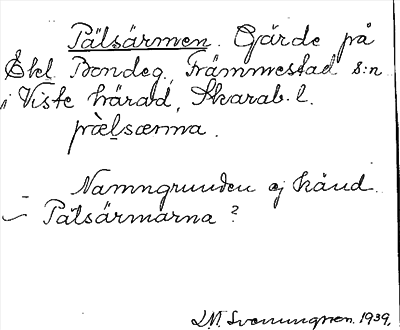 Pälsärmen. Gärde på
Ekl. Bondeg., Främmestad s:n
i Viste härad, Skarab. l.
pæ̀lsærma.
Namngrunden ej känd.
Pälsärmarna?
L.M. Svenungsson. 1939.